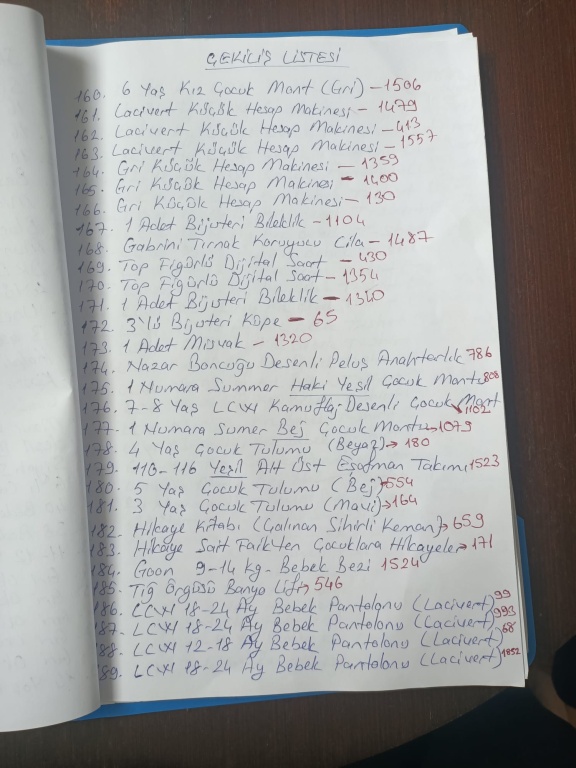 ÇEKİLİŞ LİSTESİ
160. 6 Yaş Kız Çocuk Mont (Gri) - 1506
161. Lacivert Küçük Hesap Makinesi - 1479
162. Lacivert Küçük Hesap Makinesi - 413
163. Lacivert Küçük Hesap Makinesi - 1557
164. Gri Küçük Hesap Makinesi - 1359
165. Gri Küçük Hesap Makinesi - 1400
166. Gri Küçük Hesap Makinesi - 130
167. 1 Adet Bijuteri Bileklik - 1104
168. Gabrini Tırnak Koruyucu Cila - 1487
169. Top Figürlü Dijital Saat - 430
170. Top Figürlü Dijital Saat - 1354
171. 1 Adet Bijuteri Bileklik - 1340
172. 3'lü Bijuteri Küpe - 65
173. 1 Adet Misvak - 1320
174. Nazar Boncuğu Desenli Peluş Anahtarlık 786
175. 1 Numara Summer Haki Yeşil Çocuk Montu 808
176. 7-8 Yaş LCW Kamuflaj Desenli Çocuk Mont 1102
177. 1 Numara Sumer Bej Çocuk Montu → 1079
178. 4 Yaş Çocuk Tulumu (Beyaz) → 180
179. 110-116 Yeşil Alt Üst Eşofman Takımı 1523
180. 5 Yaş Çocuk Tulumu (Bej) → 554
181. 3 Yaş Çocuk Tulumu (Mavi) → 164
182. Hikaye Kitabı (Çalınan Sihirli Keman) → 659
183. Hikaye Sait Faik'ten Çocuklara Hikayeler → 171
184. Goon 9-14 kg. Bebek Bezi 1524
185. Tığ Örgüsü Banyo Lifi → 546
186. LCW 18-24 Ay Bebek Pantolonu (Lacivert) 99
187. LCW 18-24 Ay Bebek Pantolonu (Lacivert) 993
188. LCW 12-18 Ay Bebek Pantolonu (Lacivert) 68
189. LCW 18-24 Ay Bebek Pantolonu (Lacivert) 1852